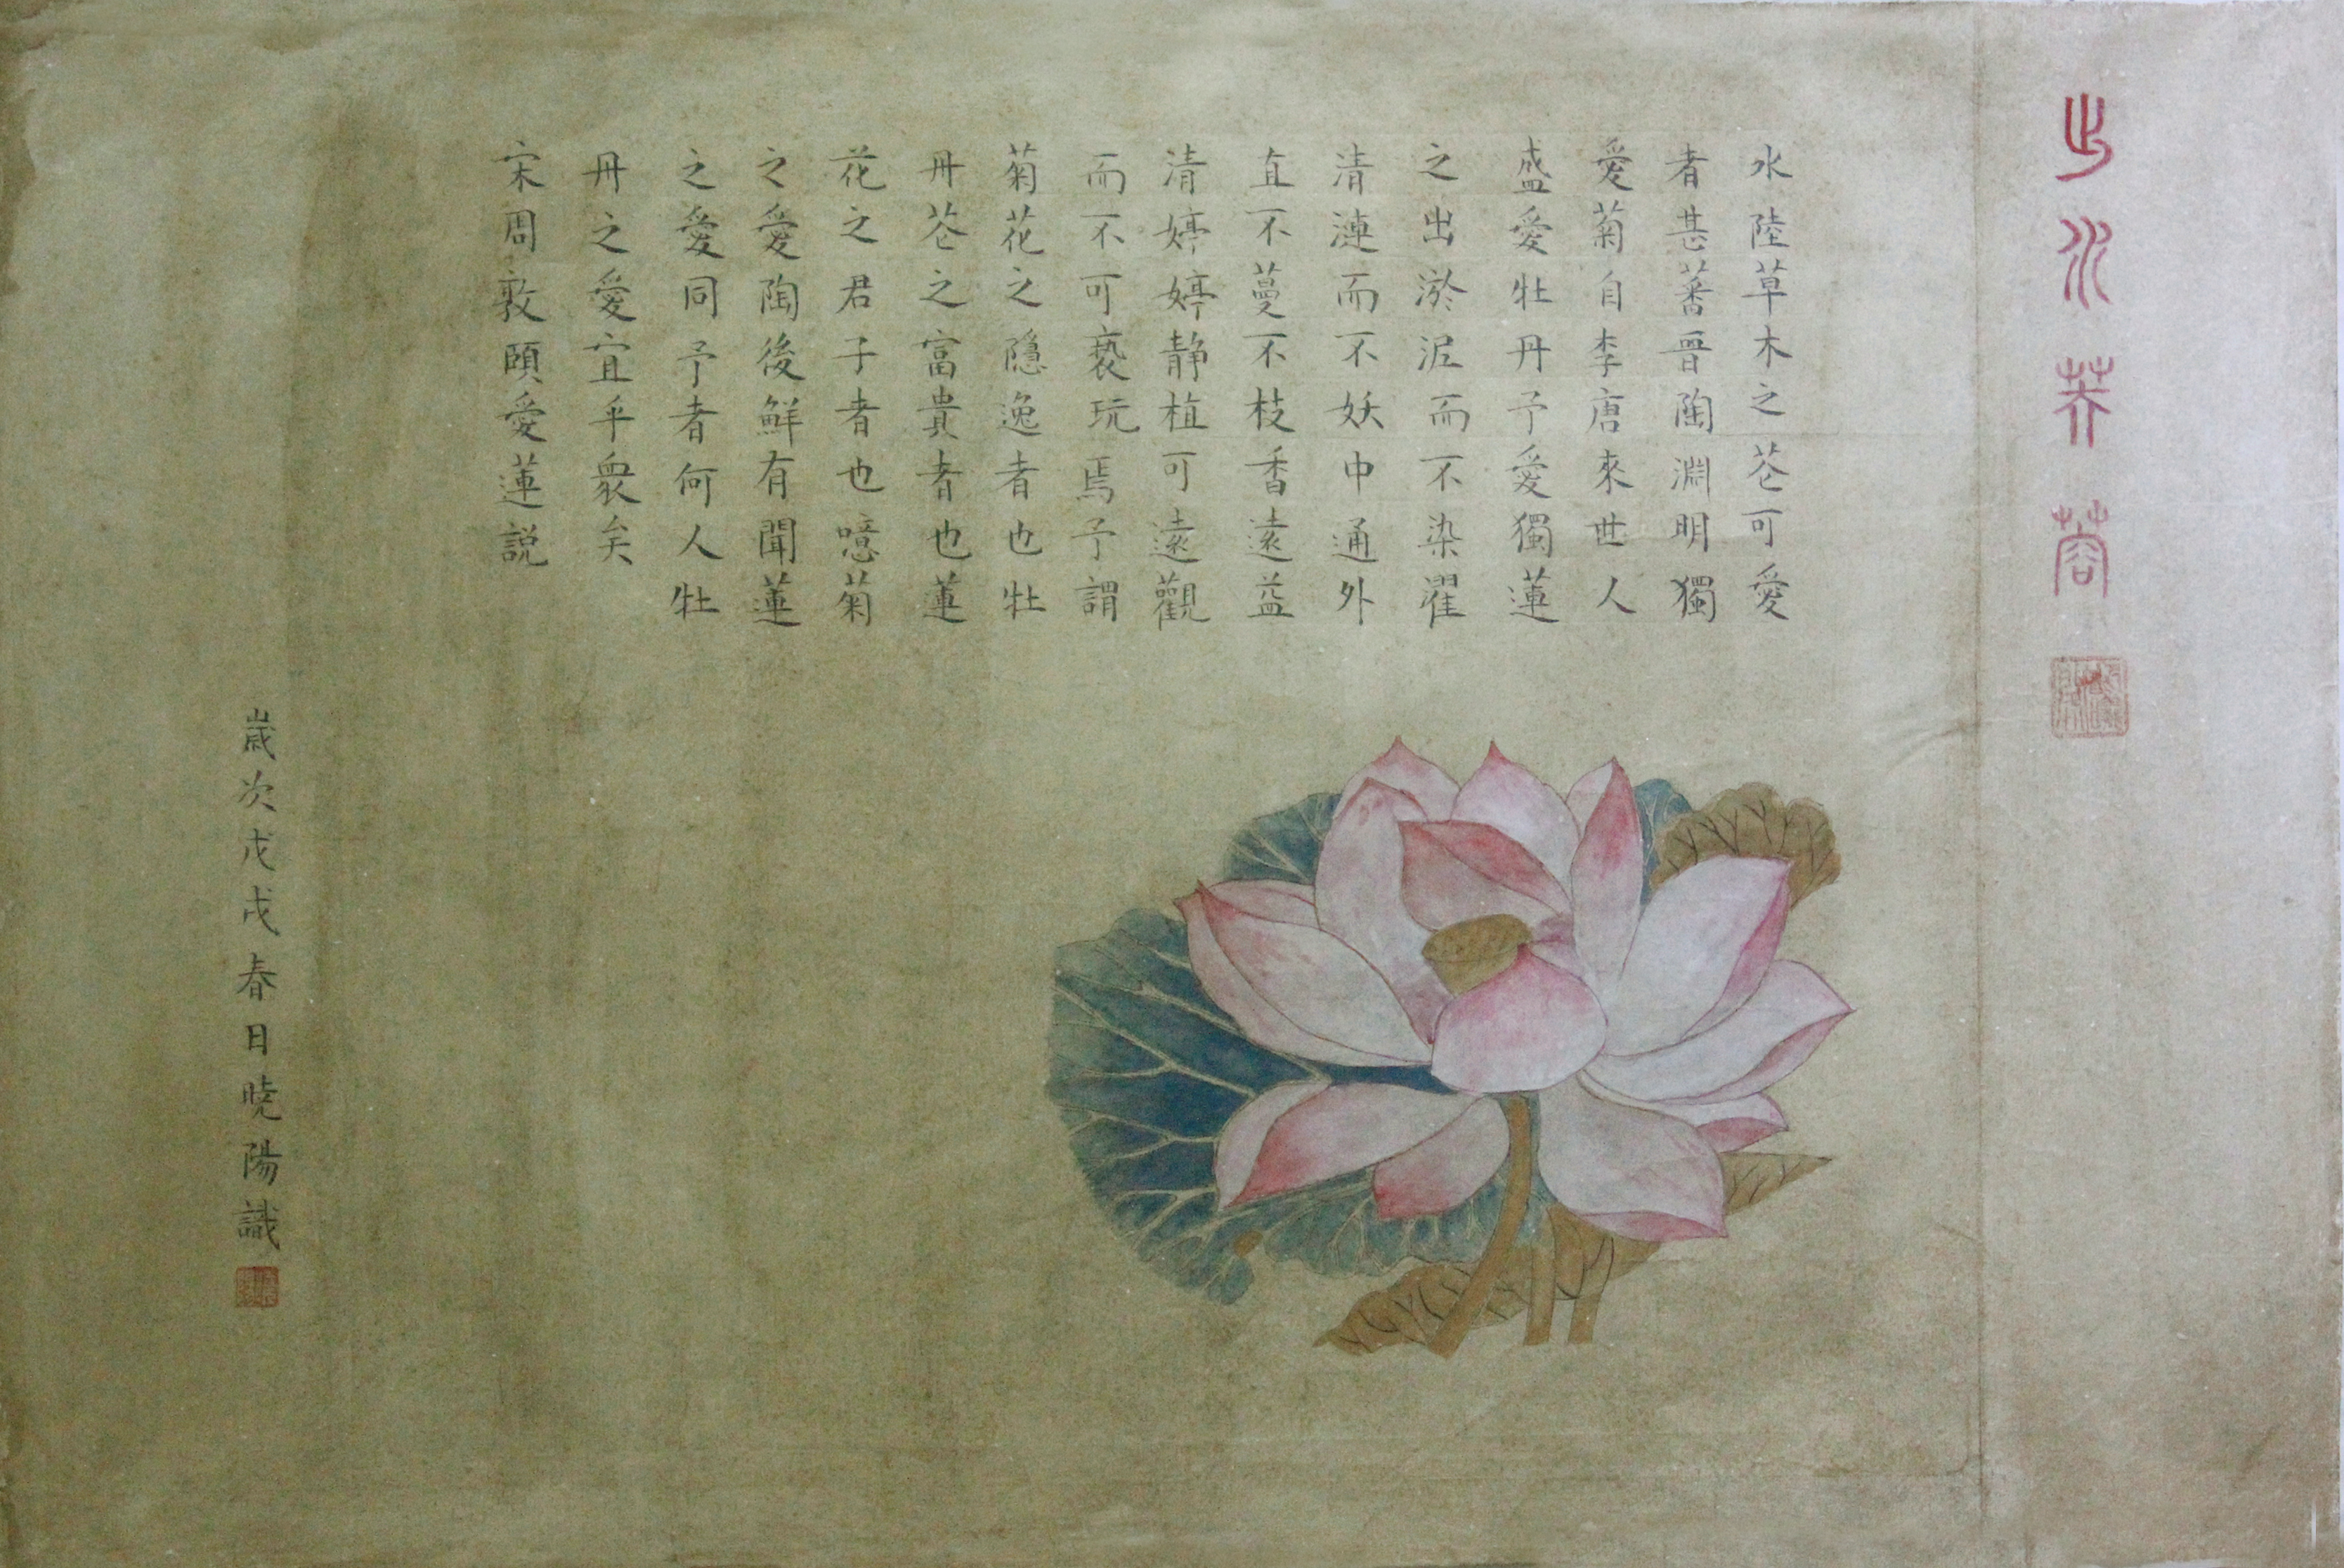 出水芙蓉
水陸草木之芲可愛
者甚蕃晉陶淵明獨
愛菊自李唐來世人
盛愛牡丹予愛獨蓮
之出淤泥而不染濯
清漣而不妖中通外
直不蔓不枝香遠益
清婷婷静植可遠觀
而不可褻玩焉予謂
菊花之隱逸者也牡
丹芲之富貴者也蓮
花之君子者也噫菊
之愛陶後鮮有聞蓮
之愛同予者何人牡
丹之愛宜乎衆矣
宋周敦頤愛蓮説
歲次戊戌春日曉陽識